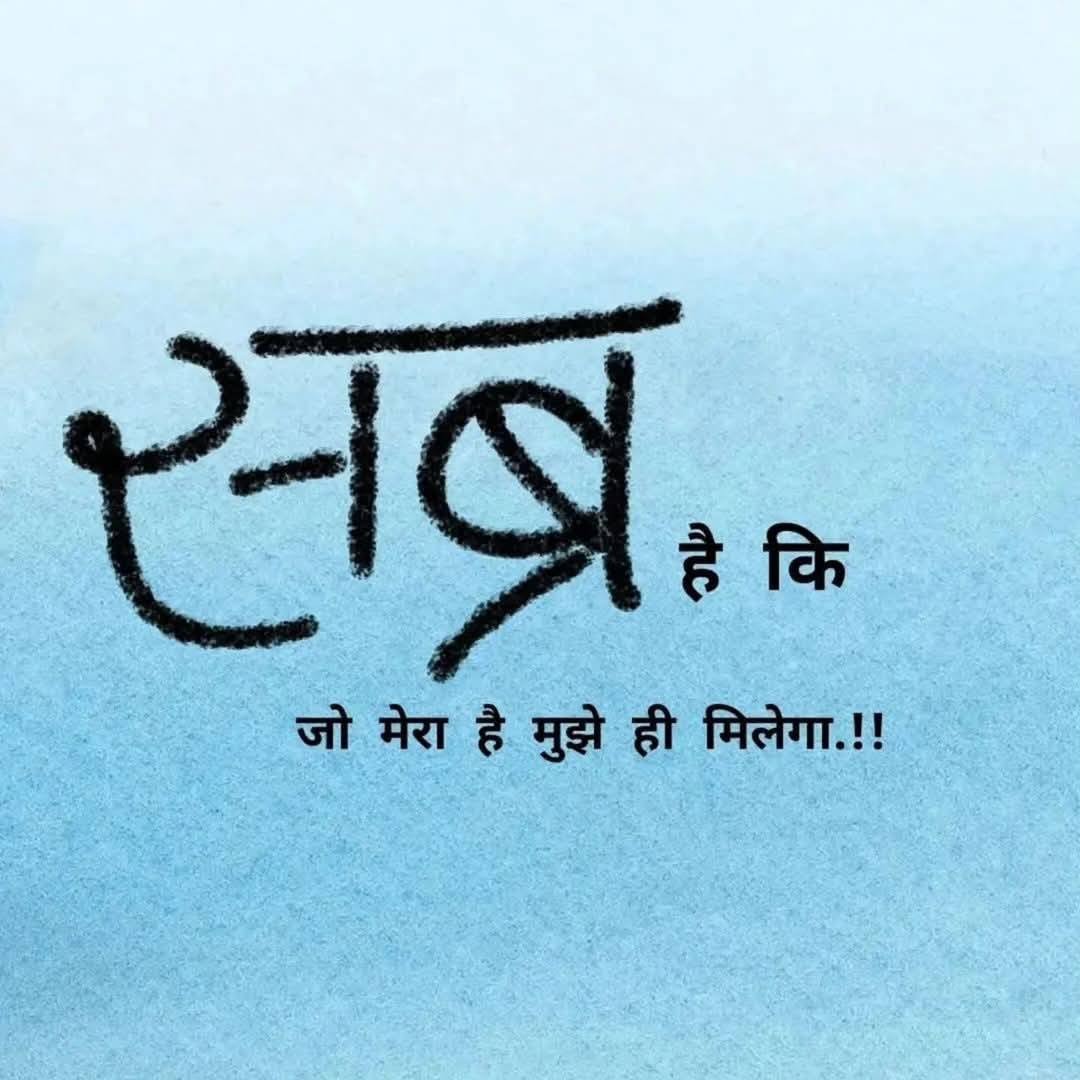 सब्र है कि
जो मेरा है मुझे ही मिलेगा.!!